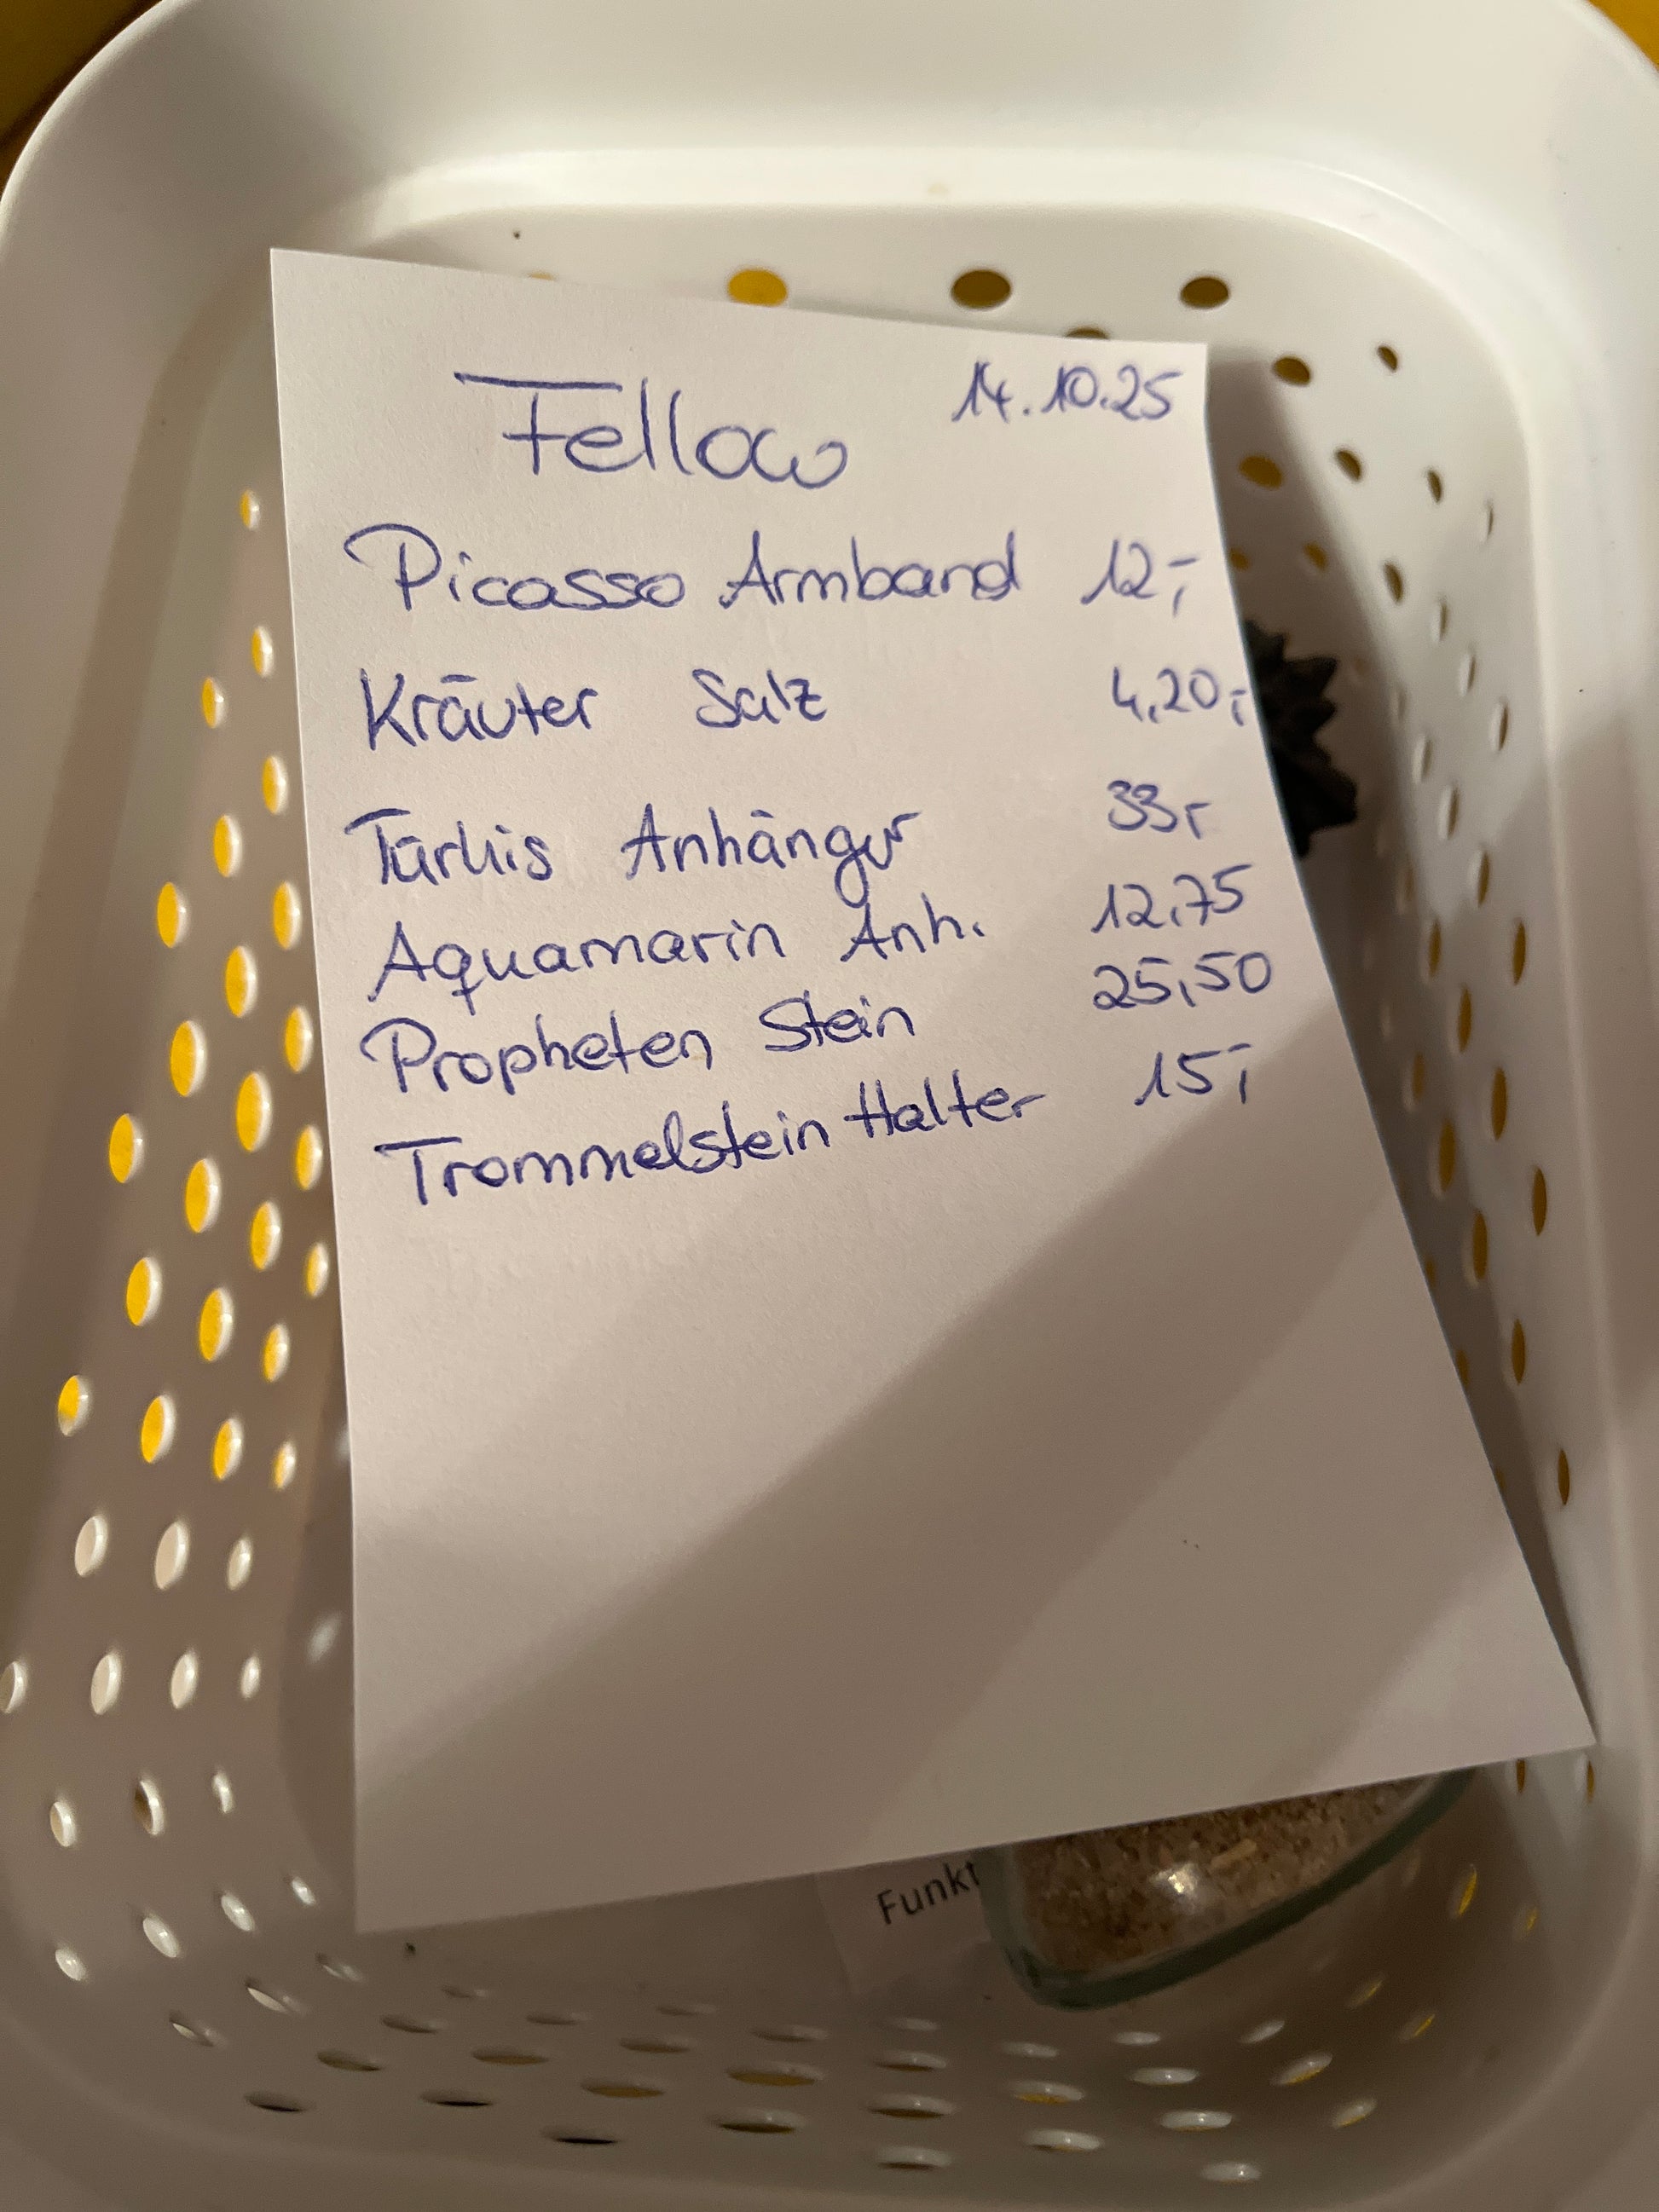 Fellow 14.10.25
Picasso Armband 12,-
Kräuter Salz 4,20,-
Türkis Anhänger 33,-
Aquamarin Anh. 12,75
Propheten Stein 25,50
Trommelstein Halter 15,-
Funkt